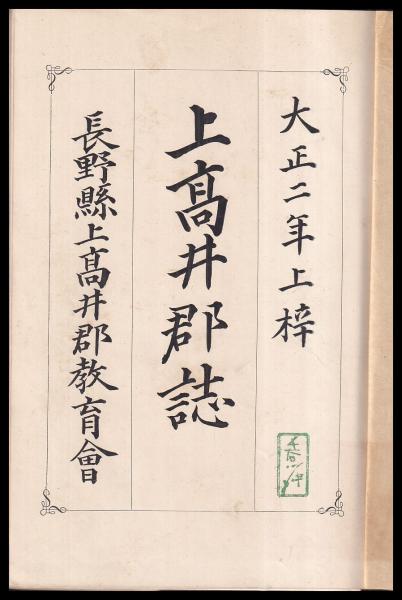 大正二年上梓
上髙井郡誌
長野縣上髙井郡教育會